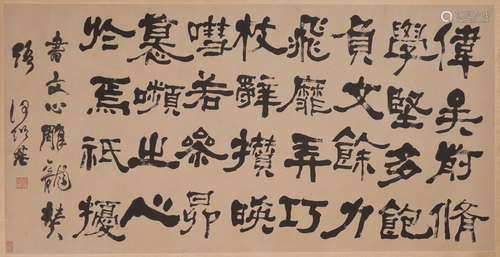 偉矣前脩
學堅多飽
負文餘力
飛靡弄巧
枝辭攢映
嘒若參昴
慕嚬之心
於焉祇擾
書文心雕龍贊
語 何紹基